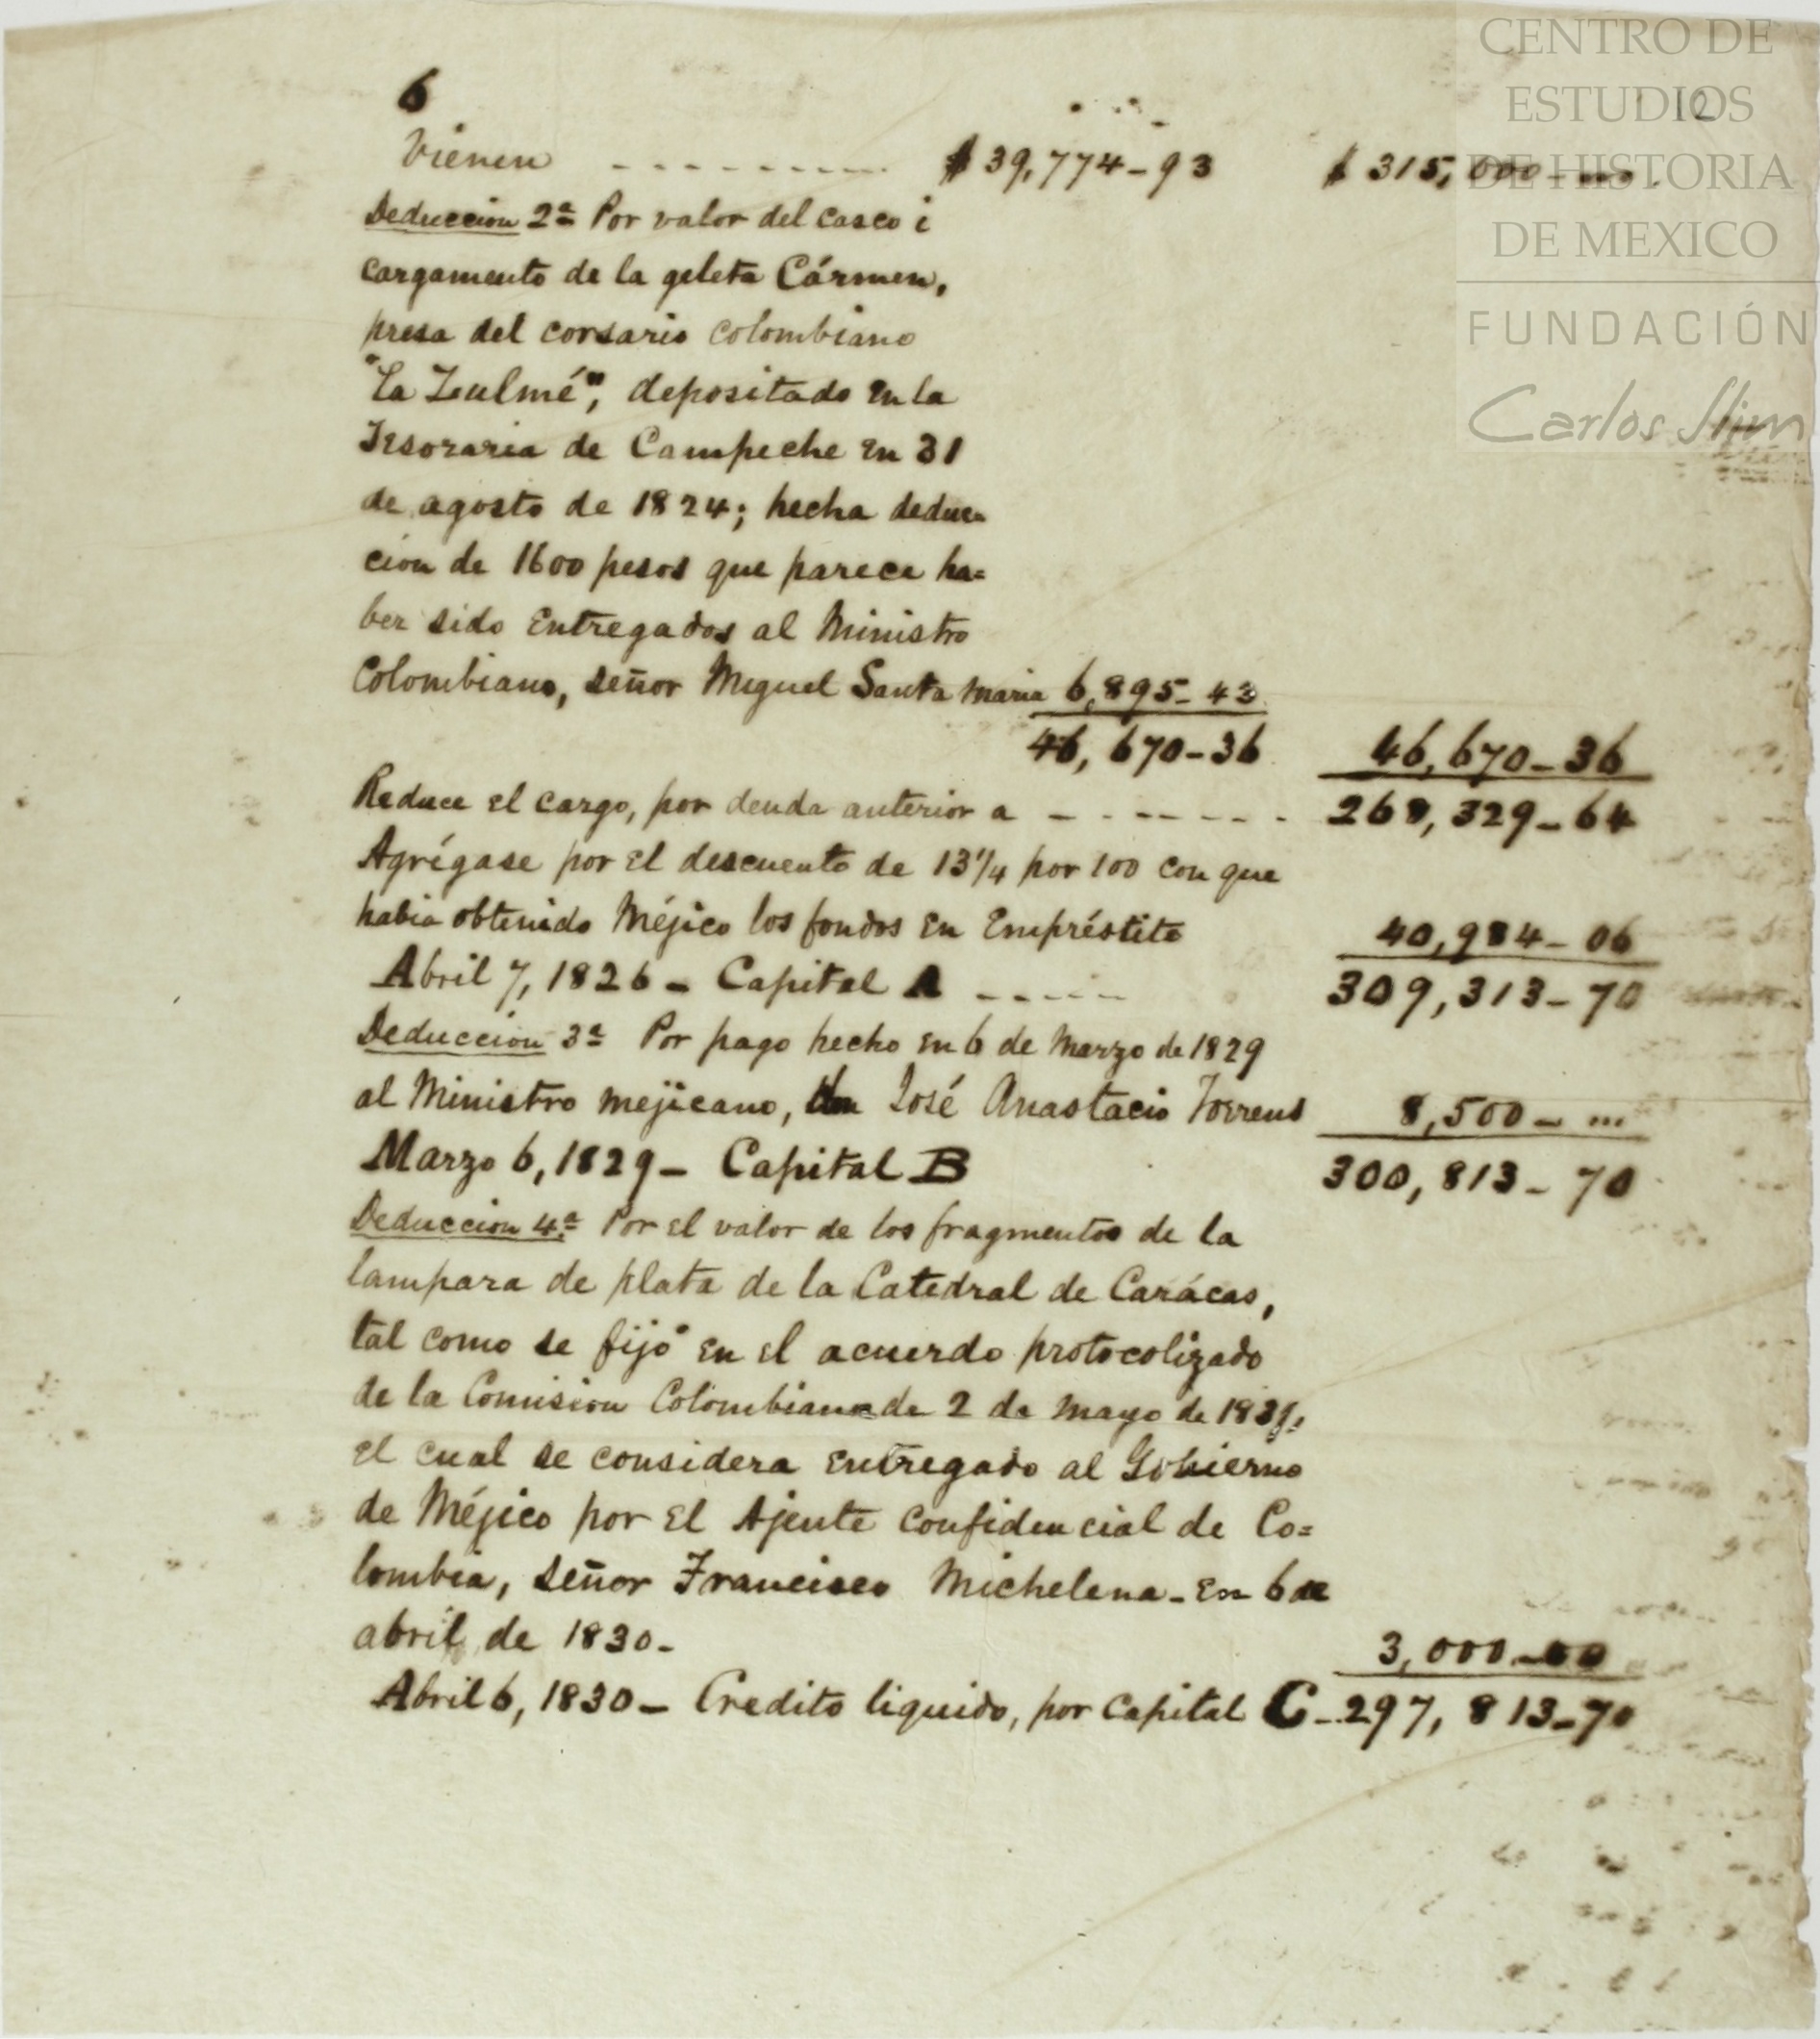 CENTRO DE
ESTUDIOS
DE HISTORIA
DE MEXICO
FUNDACIÓN
Carlos Slim
12
6
Vienen - - - - - - - - - $ 39,774-93 $ 315,000-...
Deduccion 2ª Por valor del casco i
cargamento de la goleta Cármen,
presa del corsario colombiano
"La Zulmé", depositado en la
Tesoraria de Campeche en 31
de agosto de 1824; hecha deduc-
cion de 1600 pesos que parece ha=
ber sido entregados al Ministro
Colombiano, señor Miguel Santa Maria 6,895-43
46,670-36 46,670-36
Reduce el cargo, por deuda anterior a - - - - - - - 268,329-64
Agrégase por el descuento de 13 1/4 por 100 con que
habia obtenido Méjico los fondos en Empréstito 40,984-06
Abril 7, 1826 - Capital A - - - - - 309,313-70
Deduccion 3ª Por pago hecho en 6 de Marzo de 1829
al Ministro mejicano, don José Anastacio Torrens 8,500-...
Marzo 6, 1829 - Capital B 300,813-70
Deduccion 4ª Por el valor de los fragmentos de la
lampara de plata de la Catedral de Carácas,
tal como se fijó en el acuerdo protocolizado
de la Comision Colombiana de 2 de Mayo de
el cual se considera entregado al Gobierno
de Méjico por el Ajente confidencial de Co=
lombia, señor Francisco Michelena - En 6 de
abril de 1830- 3,000-00
Abril 6, 1830 - Credito liquido, por Capital C - 297,813-70